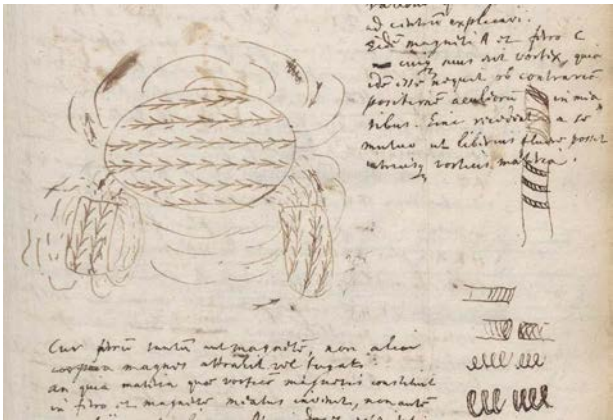 ad centrum explicavi.
Eidem magneti A et ferro C
cuiq suus erit vortex, quia
idem esse nequit ob contrariam
positionem aculeorum in mea
tibus. hinc recedent a se
mutuo ut liberius fluere possit
utriusq vorticis materia.
Cur ferrum tantum aut magnetem non alia
corpora magnes attrahit vel fugat.
an quia materia quae vortices magneticos constituit
in ferro et magnete meatus invenit, non aute